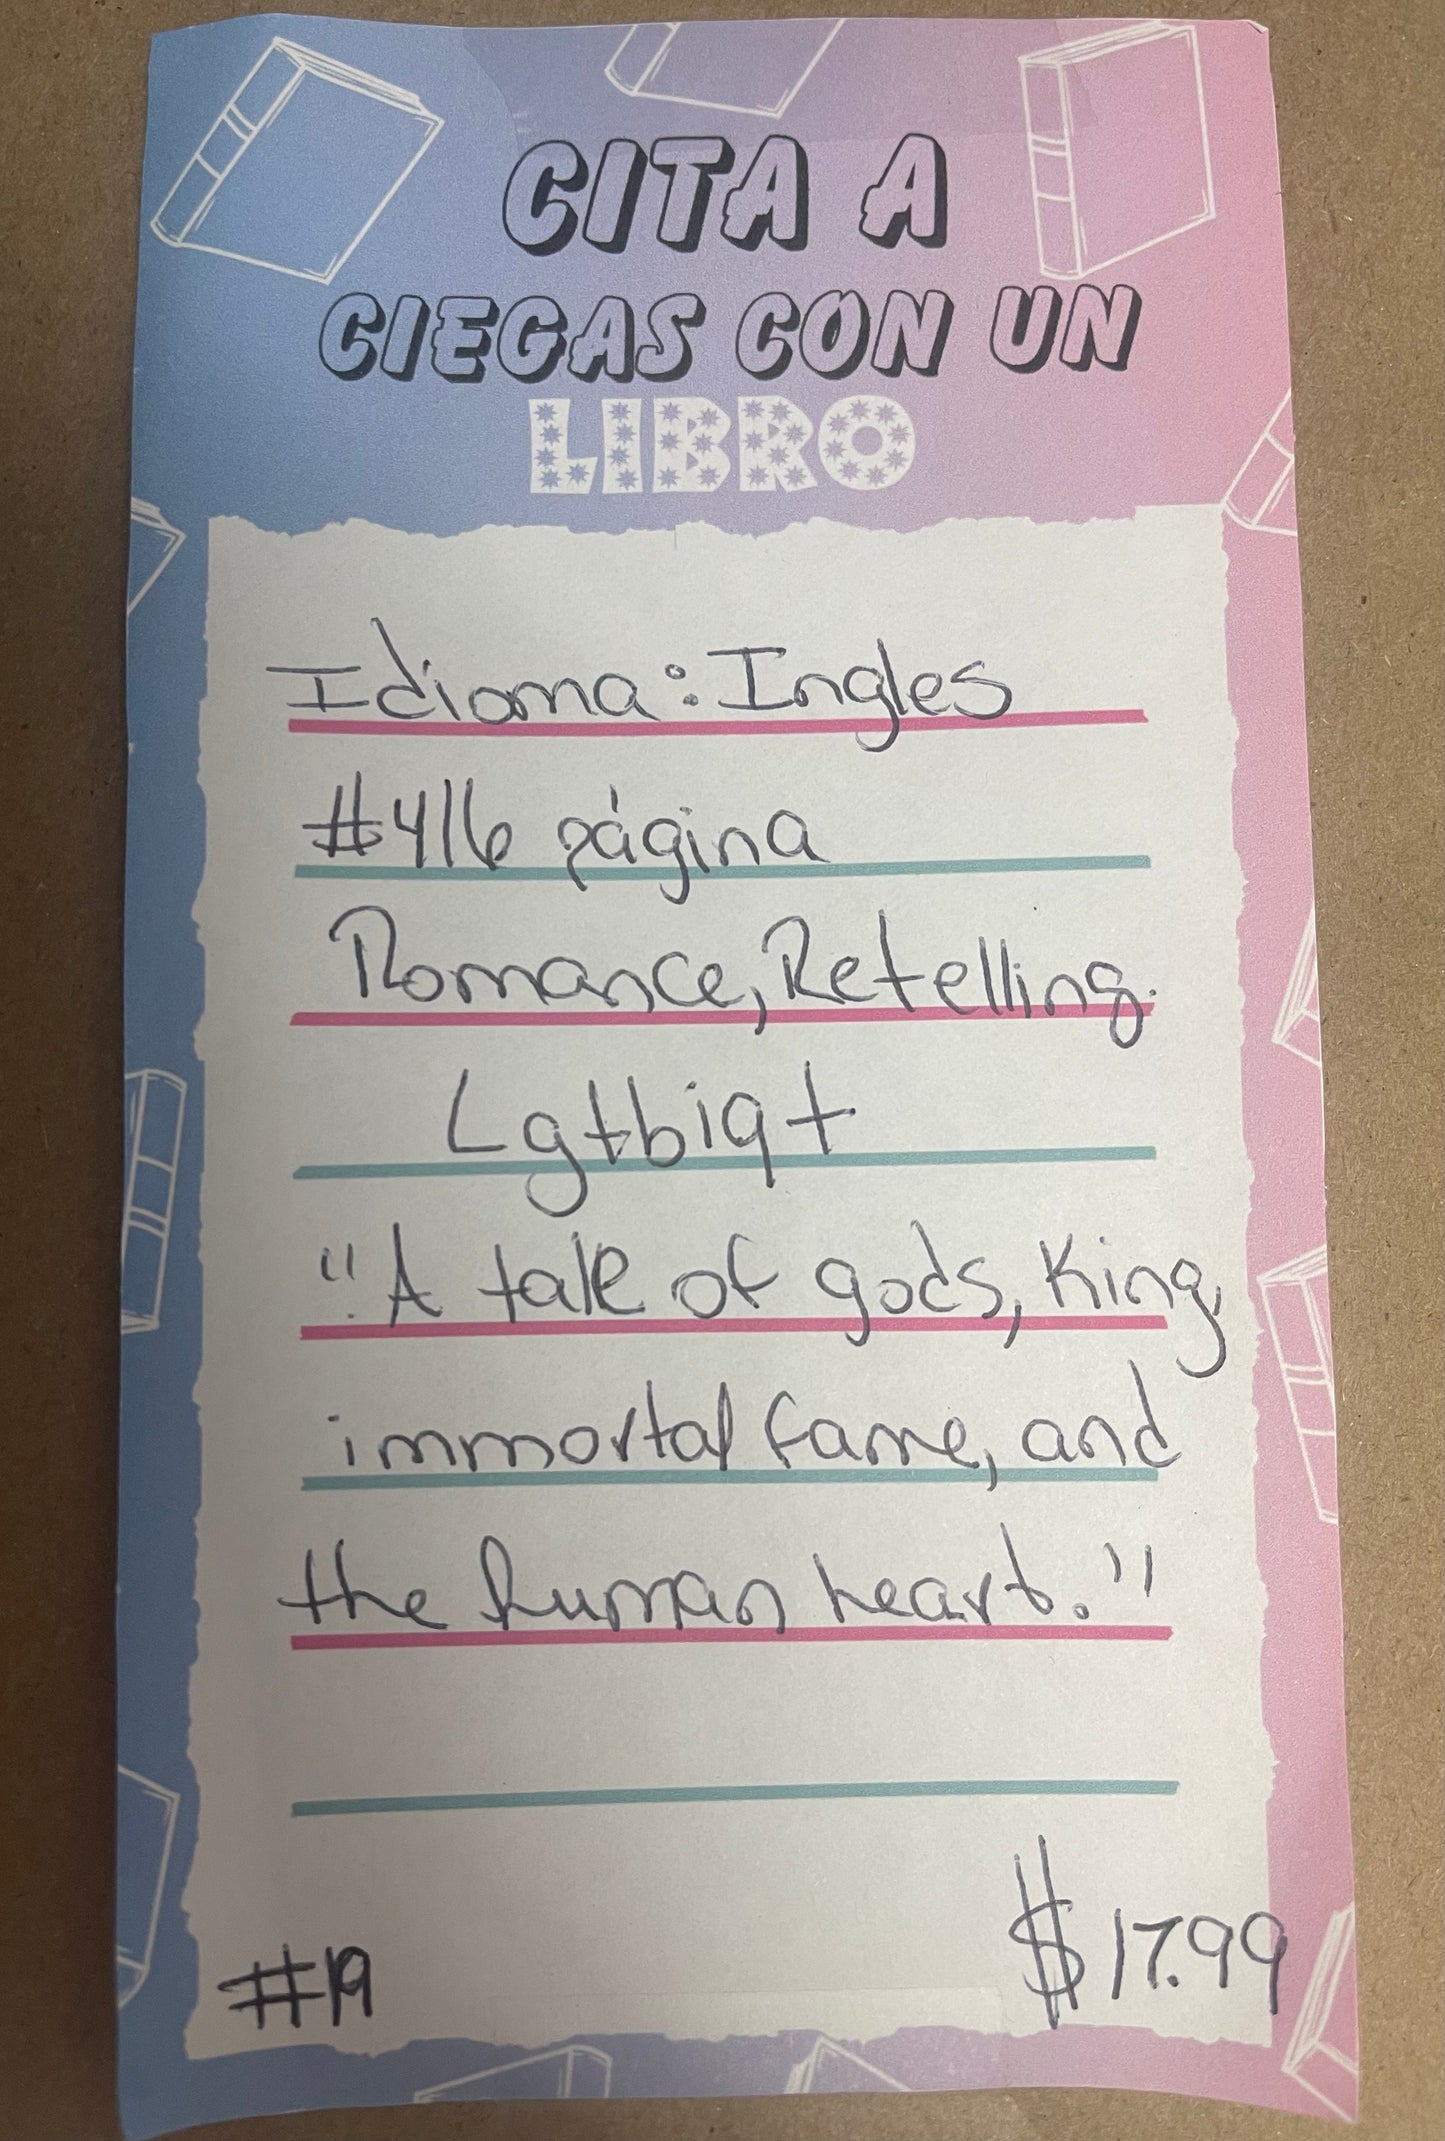 CITA A
CIEGAS CON UN
LIBRO
Idioma: Ingles
#416 página
Romance, Retelling.
Lgtbiq+
"A tale of gods, King,
immortal fame, and
the human heart."
#19
$17.99